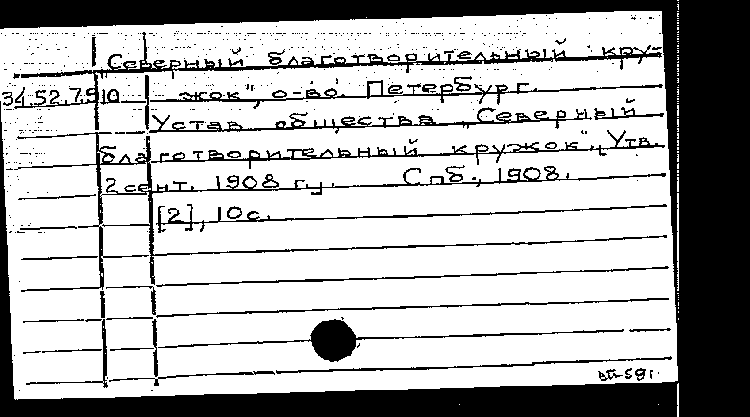 "Северный благотворительный кру-
34.52.7.510 жок", о-во. Петербург.
Устав общества „Северный
благотворительный кружок". [Утв.
2 сент. 1908 г.]. Спб., 1908.
[2], 10 с.